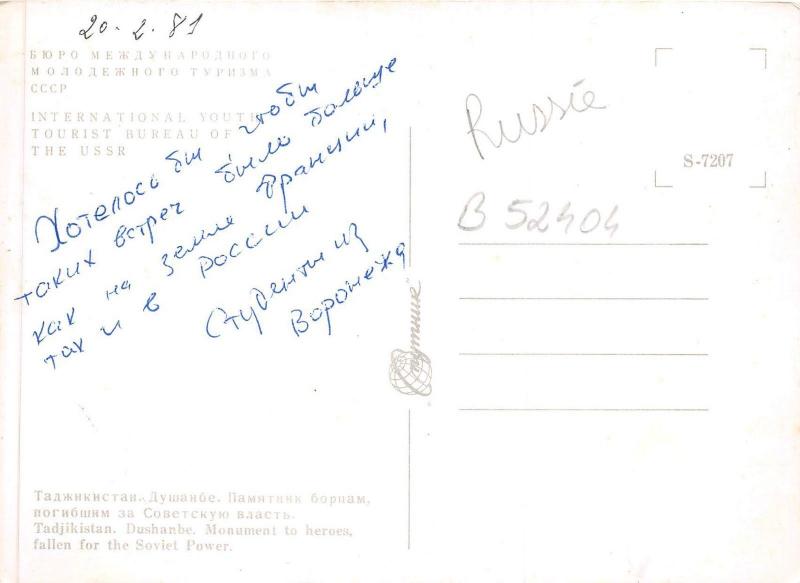 20-2.81
БЮРО МЕЖДУНАРОДНОГО
МОЛОДЕЖНОГО ТУРИЗМА
СССР
INTERNATIONAL YOUTH
TOURIST BUREAU OF
THE USSR
Хотелось бы чтобы
таких встреч было больше
как на земле Франции,
так и в России
Студенты из
Воронежа
Таджикистан. Душанбе. Памятник борцам,
погибшим за Советскую власть.
Tadjikistan. Dushanbe. Monument to heroes,
fallen for the Soviet Power.
Спутник
Russie
S-7207
B 52404